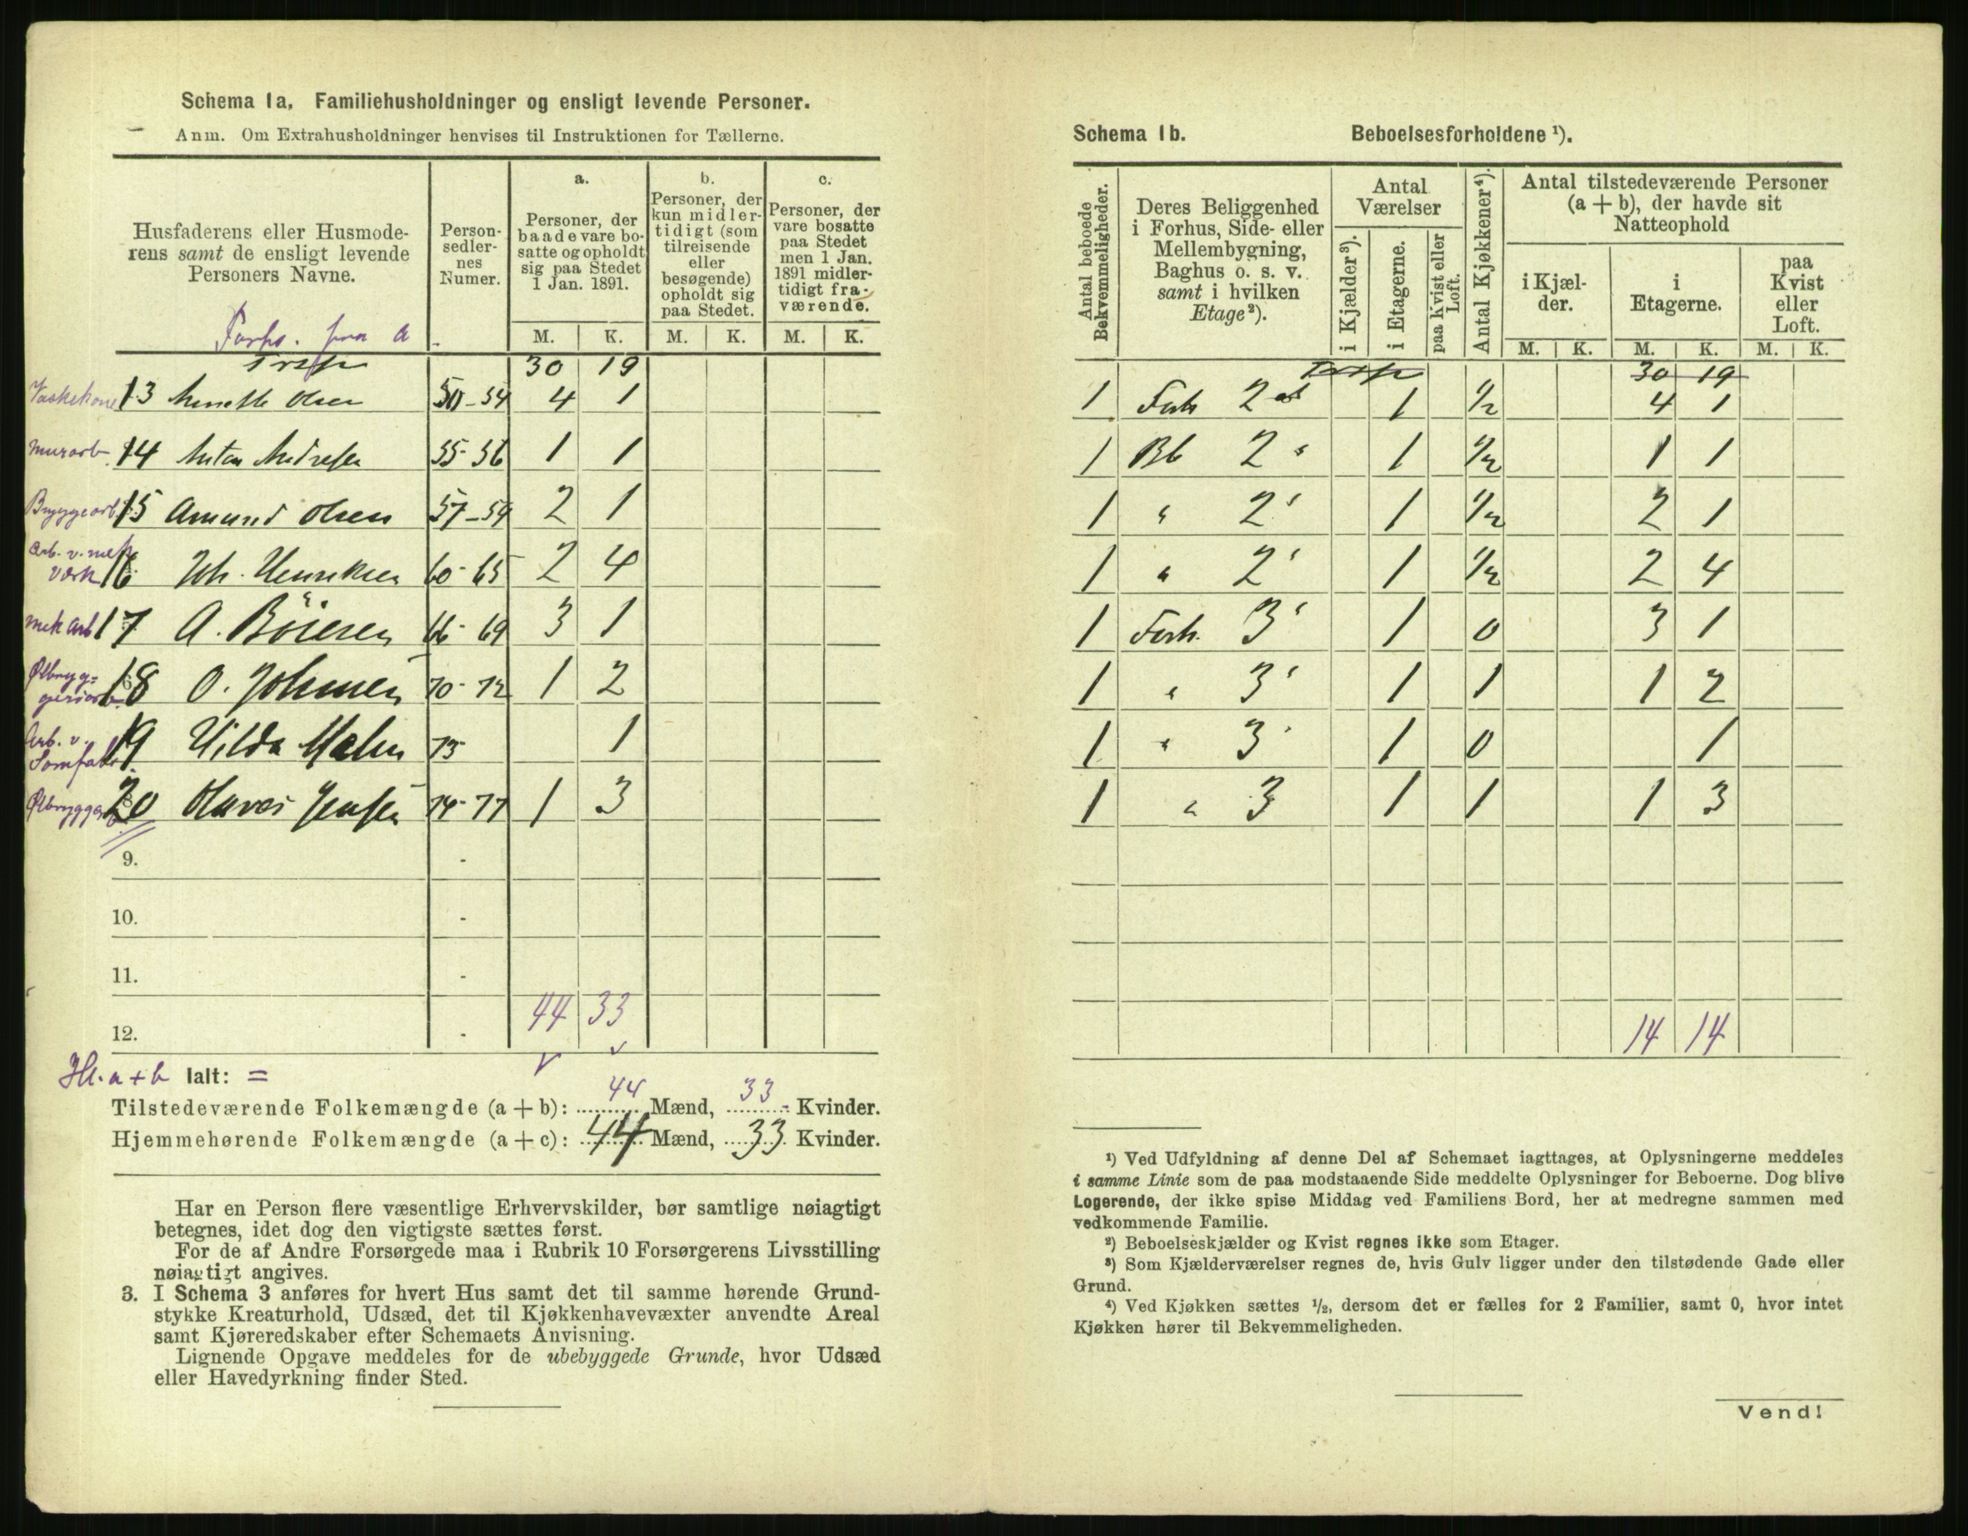 Schema 1a. Familiehusholdninger og ensligt levende Personer.
Anm. Om Extrahusholdninger henvises til Instruktionen for Tællerne.
Husfaderens eller Husmode-
rens samt de ensligt levende
Personers Navne.
Person-
sedler-
nes
Numer.
a.
Personer, der
baade vare bo-
satte og opholdt
sig paa Stedet
1 Jan. 1891.
b.
Personer, der
kun midler-
tidigt (som
tilreisende
eller
besøgende)
opholdt sig
paa Stedet.
c.
Personer, der
vare bosatte
paa Stedet
men 1 Jan.
1891 midler-
tidigt fra-
værende.
M. K. M. K. M. K.
30 19
Vaskekone 13 Olsen 50-54 4 1
Murarb. 14 Anton Andresen 55-56 1 1
Bryggearb. 15 Amund Olsen 57-59 2 1
Arb. v. mek
Værk 16 Joh. Henriksen 60-65 2 4
mek Arb 17 A. Böiesen 66-69 3 1
Ølbryg-
geriarb. 18 O. Johansen 70-72 1 2
Arb. v.
Sømfab. 19 Hilda Malm 73 1
20 Jensen 74-77 1 3
9. -
10. -
11. -
12. - 44 33
Hl. a+b Ialt: =
Tilstedeværende Folkemængde (a + b): 44 Mænd, 33 Kvinder.
Hjemmehørende Folkemængde (a + c): 44 Mænd, 33 Kvinder.
Har en Person flere væsentlige Erhvervskilder, bør samtlige nøiagtigt
betegnes, idet dog den vigtigste sættes først.
For de af Andre Forsørgede maa i Rubrik 10 Forsørgerens Livsstilling
nøiagtigt angives.
3. I Schema 3 anføres for hvert Hus samt det til samme hørende Grund-
stykke Kreaturhold, Udsæd, det til Kjøkkenhavevæxter anvendte Areal
samt Kjøreredskaber efter Schemaets Anvisning.
Lignende Opgave meddeles for de ubebyggede Grunde, hvor Udsæd
eller Havedyrkning finder Sted.
Schema 1b. Beboelsesforholdene ¹).
Antal beboede
Bekvemmeligheder.
Deres Beliggenhed
i Forhus, Side- eller
Mellembygning,
Baghus o. s. v.
samt i hvilken
Etage²).
Antal
Værelser
i Kjælder³).
i Etagerne.
paa Kvist eller
Loft.
Antal Kjøkkener⁴).
Antal tilstedeværende Personer
(a + b), der havde sit
Natteophold
i Kjæl-
der.
i
Etagerne.
paa
Kvist
eller
Loft.
M. K. M. K. M. K.
30 19
1 Forh 2 1 ½ 4 1
1 Bb 2 " 1 ½ 1 1
1 " 2 ' 1 ½ 2 1
1 " 2 ' 1 ½ 2 4
1 Forh. 3 ' 1 0 3 1
1 " 3 ' 1 1 1 2
1 " 3 ' 1 0 1
1 " 3 1 1 1 3
14 14
¹) Ved Udfyldning af denne Del af Schemaet iagttages, at Oplysningerne meddeles
i samme Linie som de paa modstaaende Side meddelte Oplysninger for Beboerne. Dog blive
Logerende, der ikke spise Middag ved Familiens Bord, her at medregne sammen med
vedkommende Familie.
²) Beboelseskjælder og Kvist regnes ikke som Etager.
³) Som Kjælderværelser regnes de, hvis Gulv ligger under den tilstødende Gade eller
Grund.
⁴) Ved Kjøkken sættes ½, dersom det er fælles for 2 Familier, samt 0, hvor intet
Kjøkken hører til Bekvemmeligheden.
Vend!